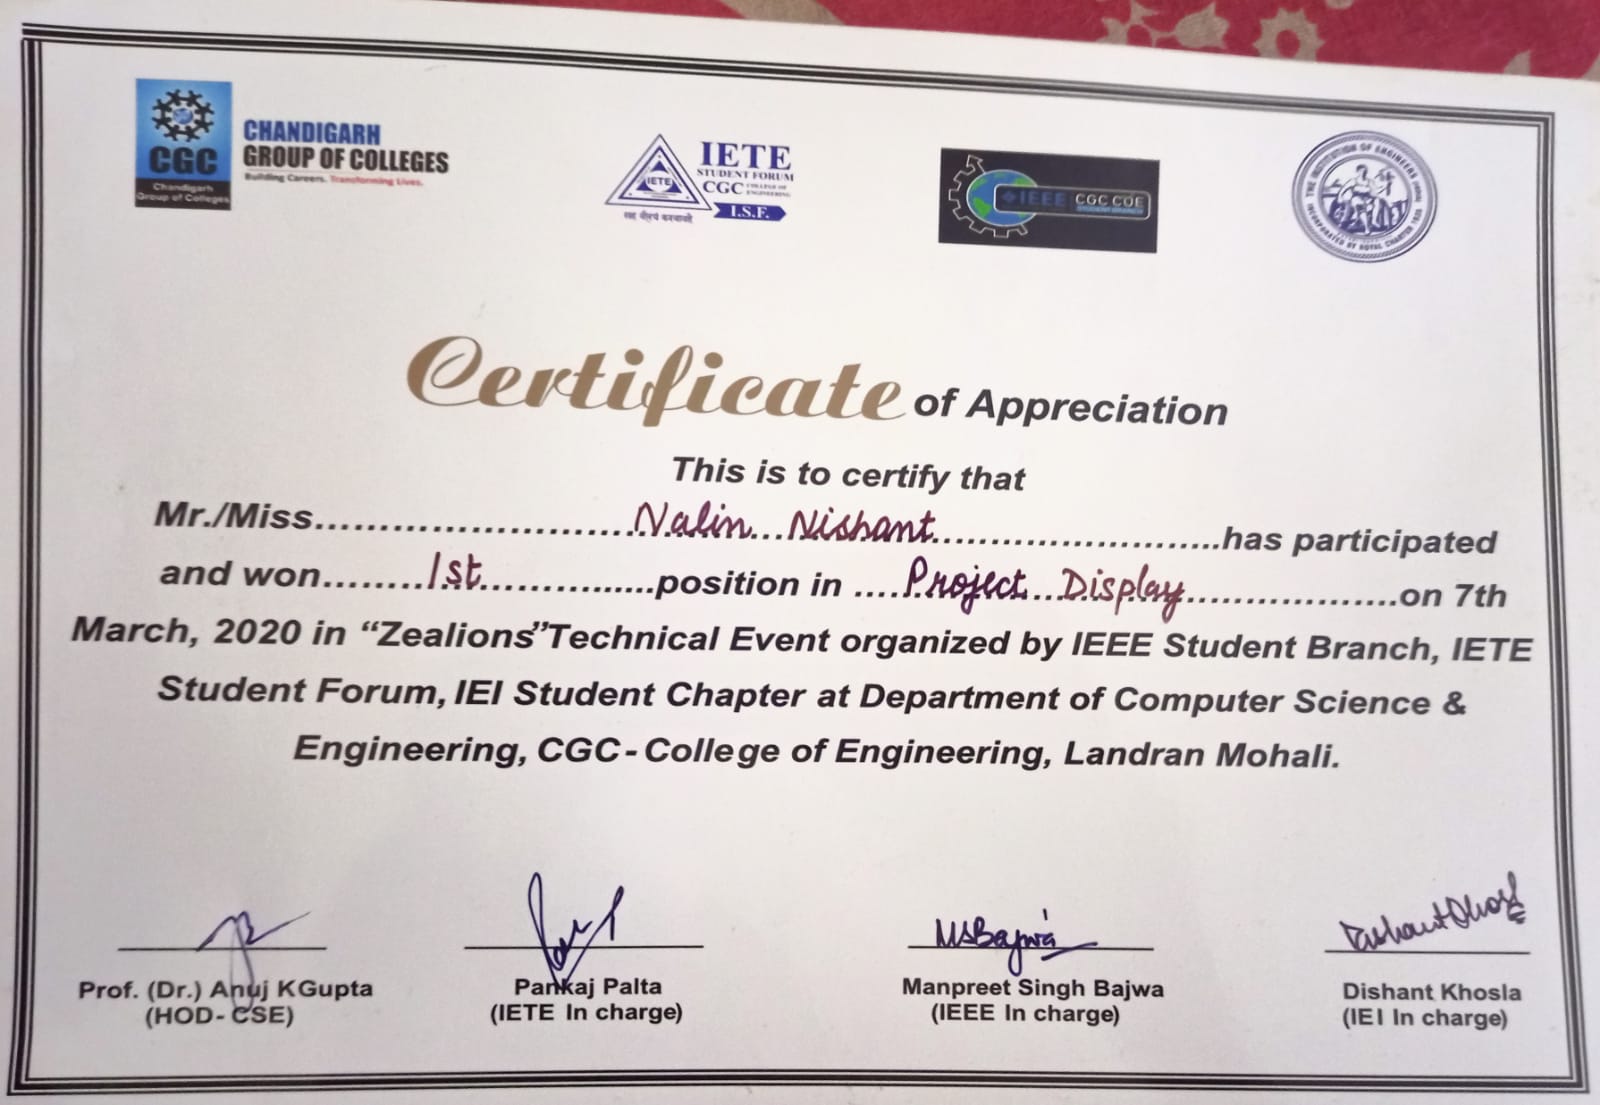 CGC
Chandigarh
Group of Colleges
CHANDIGARH
GROUP OF COLLEGES
Building Careers. Transforming Lives.
IETE
IETE
STUDENT FORUM
CGC COLLEGE OF ENGINEERING
I.S.F.
IEEE CGC COE
STUDENT BRANCH
THE INSTITUTION OF ENGINEERS (INDIA)
INCORPORATED BY ROYAL CHARTER 1935
Certificate of Appreciation
This is to certify that
Mr./Miss..........................Nalin Nishant..........................has participated
and won........1st................position in ....Project Display....................on 7th
March, 2020 in “Zealions”Technical Event organized by IEEE Student Branch, IETE
Student Forum, IEI Student Chapter at Department of Computer Science &
Engineering, CGC-College of Engineering, Landran Mohali.
MSBajwa
Dishant Khosla
Prof. (Dr.) Anuj KGupta
(HOD-CSE)
Pankaj Palta
(IETE In charge)
Manpreet Singh Bajwa
(IEEE In charge)
Dishant Khosla
(IEI In charge)